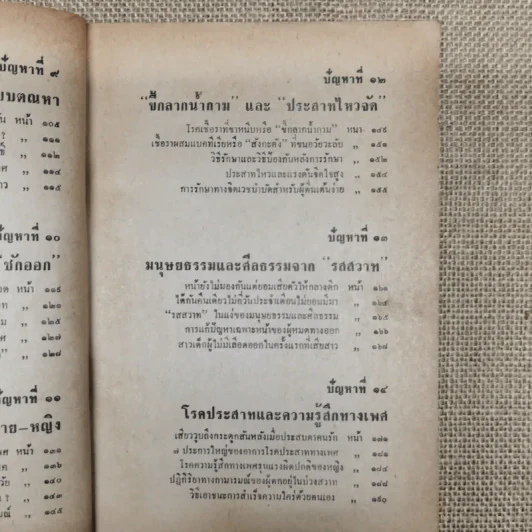 ปัญหาที่ ๙
ยบตณหา
หน้า ๑๐๕
? ,, ๑๑๑
,, ๑๑๒
ศ ,, ๑๑๔
าว ,, ๑๑๕
ปัญหาที่ ๑๐
ซักออก”
อด หน้า ๑๑๙
ท ,, ๑๒๐
ม ,, ๑๒๕
ศ ,, ๑๒๗
” ,, ๑๒๘
ปัญหาที่ ๑๑
าย–หญิง
ศ หน้า ๑๓๑
ค ,, ๑๓๖
วัย ,, ๑๔๐
? ,, ๑๔๓
ณ์ ,, ๑๔๕
ปัญหาที่ ๑๒
“ขี้กลากน้ำกาม” และ “ประสาทไหวจัด”
โรคเชื้อราที่ขาหนีบหรือ “ขี้กลากน้ำกาม” หน้า ๑๔๙
เชื้อราผสมแบคทีเรียหรือ “สังคะตัง” ที่ขนอวัยวะลับ ,, ๑๕๑
วิธีรักษาและวิธีป้องกันหลังการรักษา ,, ๑๕๒
ประสาทไหวและแรงดันจิตใจสูง ,, ๑๕๔
การรักษาทางจิตเวชบำบัดสำหรับผู้ตื่นเต้นง่าย ,, ๑๕๕
ปัญหาที่ ๑๓
มนุษยธรรมและศีลธรรมจาก “รสสวาท”
หน้ายังไม่มองกันแต่ยอมเสียตัวให้กลางดึก หน้า ๑๖๐
ได้กันคืนเดียวไม่กี่วันประจำเดือนไม่ยอมมีมา ,, ๑๖๔
“รสสวาท” ในแง่ของมนุษยธรรมและศีลธรรม ,, ๑๖๕
การแก้ปัญหาเฉพาะหน้าของผู้หมดทางออก ,, ๑๖๖
สาวเด็กผู้ไม่มีเลือดออกในครั้งแรกที่เสียสาว ,, ๑๖๘
ปัญหาที่ ๑๔
โรคประสาทและความรู้สึกทางเพศ
เสียววูบถึงกระดูกสันหลังเมื่อประสบตาคนรัก หน้า ๑๗๑
๗ ประการใหญ่ของอาการโรคประสาททางเพศ ,,
โรคความรู้สึกทางเพศรุนแรงผิดปกติของหญิง ,, ๑๘๔
ปฏิกิริยาทางกามารมณ์ของผู้ตกอยู่ในบ่วงสวาท ,,
วิธีเอาชนะการสำเร็จความใคร่ด้วยตนเอง ,, ๑๙๐